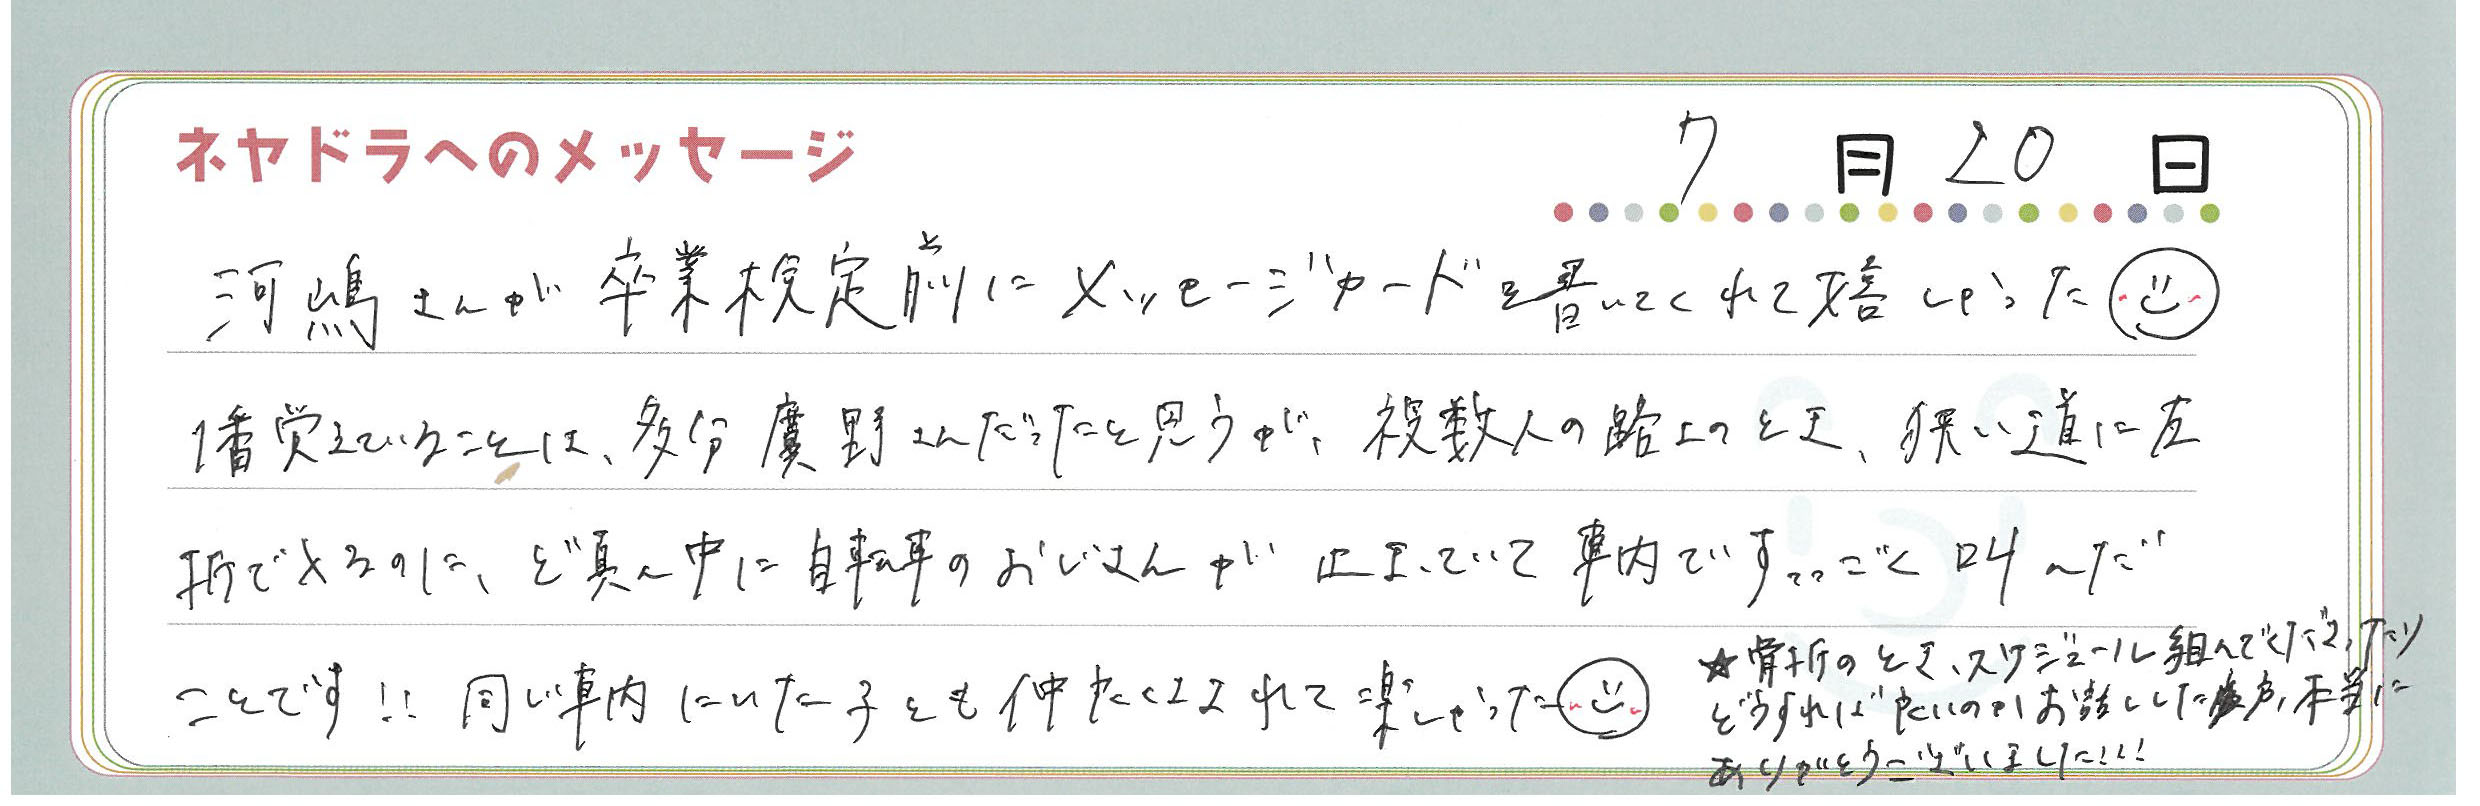 ネヤドラへのメッセージ
7月20日
河嶋さんが卒業検定前にメッセージカードを書いてくれて嬉しかった
1番覚えていることは、多分廣野さんだったと思うが、複数人の路上のとき、狭い道に左
折できるのに、ど真ん中に自転車のおじさんが止まっていて車内ですっごく叫んだ
ことです!! 同じ車内にいた子とも仲良くなれて楽しかった
★骨折のとき、スケジュール組んでくださったり
どうすれば良いのかお話しした、本当に
ありがとうございました!!!